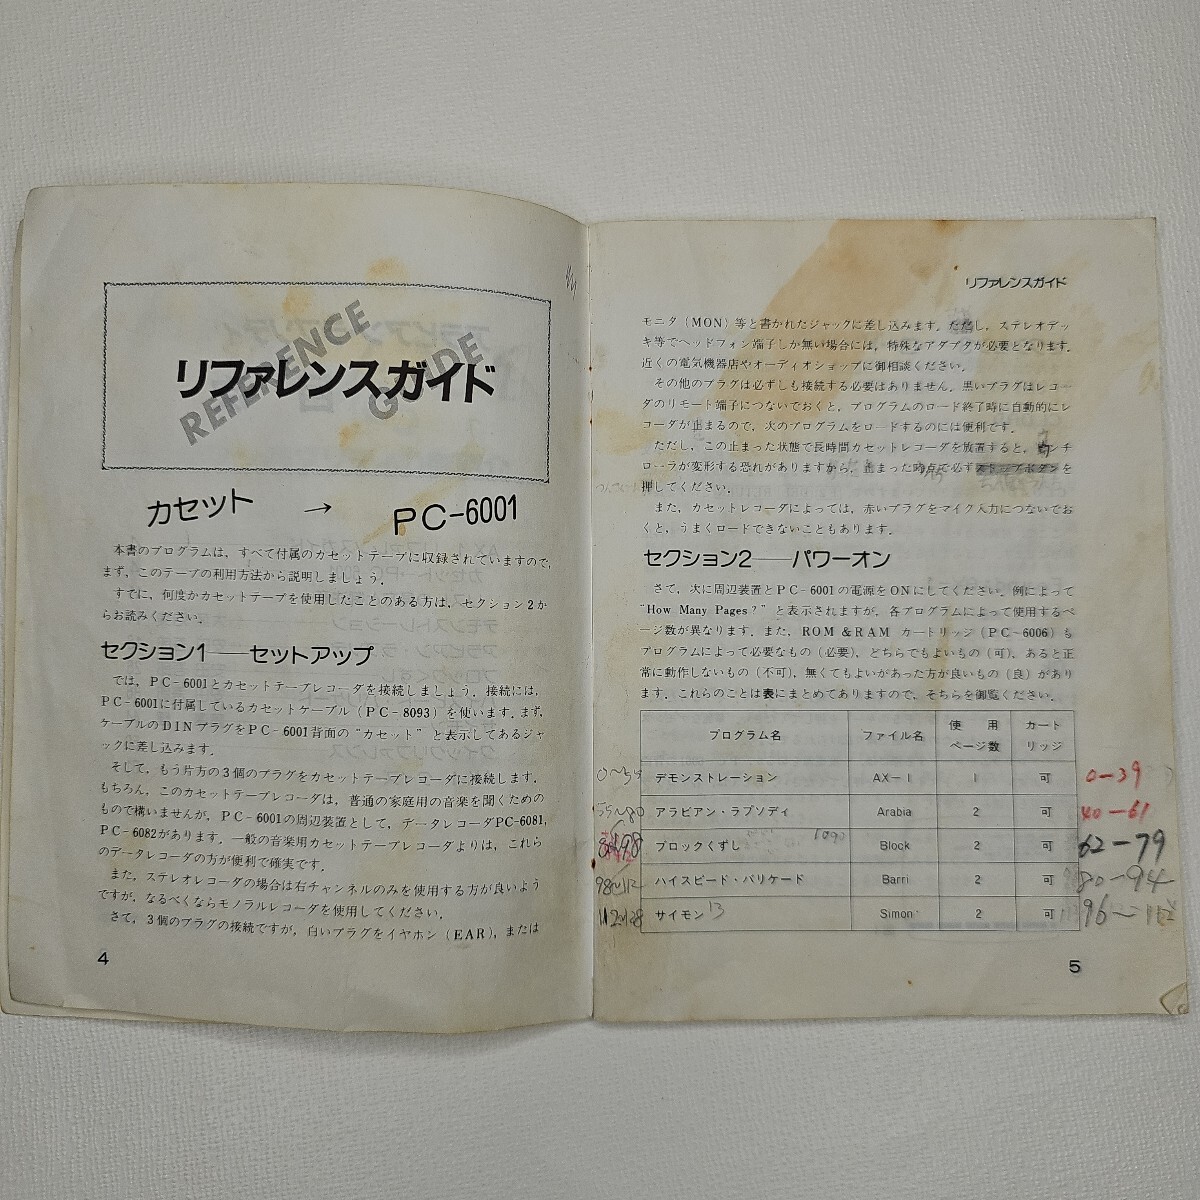 REFERENCE GUIDE
リファレンスガイド
カセット → PC-6001
本書のプログラムは，すべて付属のカセットテープに収録されていますので，
まず，このテープの利用方法から説明しましょう．
すでに，何度かカセットテープを使用したことのある方は，セクション2か
らお読みください．
セクション1──セットアップ
では，PC-6001とカセットテープレコーダを接続しましょう．接続には，
PC-6001に付属しているカセットケーブル（PC-8093）を使います．まず，
ケーブルのDINプラグをPC-6001背面の“カセット”と表示してあるジャ
ックに差し込みます．
そして，もう片方の3個のプラグをカセットテープレコーダに接続します．
もちろん，このカセットテープレコーダは，普通の家庭用の音楽を聞くための
もので構いませんが，PC-6001の周辺装置として，データレコーダPC-6081，
PC-6082があります．一般の音楽用カセットテープレコーダよりは，これら
のデータレコーダの方が便利で確実です．
また，ステレオレコーダの場合は右チャンネルのみを使用する方が良いよう
ですが，なるべくならモノラルレコーダを使用してください．
さて，3個のプラグの接続ですが，白いプラグをイヤホン（EAR），または
4
リファレンスガイド
モニタ（MON）等と書かれたジャックに差し込みます．ただし，ステレオデッ
キ等でヘッドフォン端子しか無い場合には，特殊なアダプタが必要となります．
近くの電気機器店やオーディオショップに御相談ください．
その他のプラグは必ずしも接続する必要はありません．黒いプラグはレコー
ダのリモート端子につないでおくと，プログラムのロード終了時に自動的にレ
コーダが止まるので，次のプログラムをロードするのには便利です．
ただし，この止まった状態で長時間カセットレコーダを放置すると，ンチ
ローラが変形する恐れがありますから，止まった時点で必ずストップボタンを
押してください．
また，カセットレコーダによっては，赤いプラグをマイク入力につないでお
くと，うまくロードできないこともあります．
セクション2──パワーオン
さて，次に周辺装置とPC-6001の電源をONにしてください．例によって
“How Many Pages?”と表示されますが，各プログラムによって使用するペ
ージ数が異なります．また，ROM＆RAM カートリッジ（PC-6006）も
プログラムによって必要なもの（必要），どちらでもよいもの（可），あると正
常に動作しないもの（不可），無くてもよいがあった方が良いもの（良）があり
ます．これらのことは表にまとめてありますので，そちらを御覧ください．
プログラム名 ファイル名 使用ページ数 カートリッジ
0〜54 デモンストレーション AX-1 1 可 0-39
55〜80 アラビアン・ラプソディ Arabia 2 可 40-61
ブロックくずし 1090 Block 2 可 62-79
98〜112 ハイスピード・バリケード Barri 2 可 80-94
112〜128 サイモン 13 Simon 2 可 96〜112
5